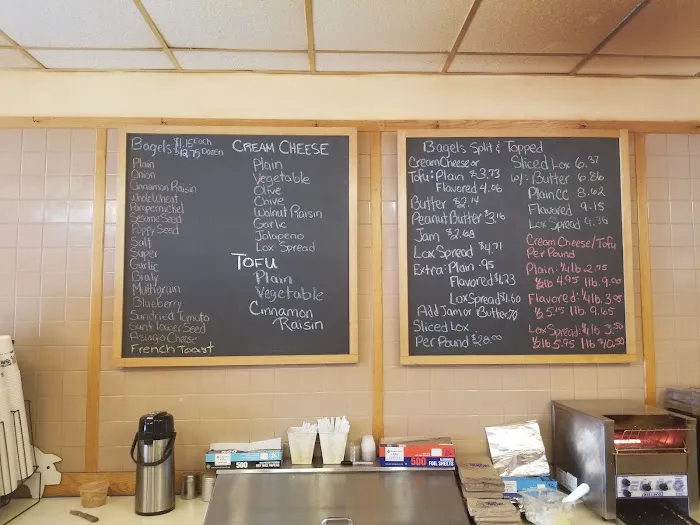 Bagels $1.15 Each
$12.75 Dozen
Plain
Onion
Cinnamon Raisin
Whole Wheat
Pumpernickel
Sesame Seed
Poppy Seed
Salt
Super
Garlic
Bialy
Multigrain
Blueberry
Sundried Tomato
Sunflower Seed
Asiago Cheese
French Toast
CREAM CHEESE
Plain
Vegetable
Olive
Chive
Walnut Raisin
Garlic
Jalapeno
Lox Spread
TOFU
Plain
Vegetable
Cinnamon
Raisin
Bagels Split & Topped
Cream Cheese or
Tofu: Plain $3.73
Flavored 4.06
Butter $2.14
Peanut Butter $3.16
Jam $2.68
Lox Spread $4.71
Extra: Plain .95
Flavored $1.23
Lox Spread $1.60
Add Jam or Butter .70
Sliced Lox
Per Pound $28.00
Sliced Lox 6.37
w/: Butter 6.86
Plain CC 8.62
Flavored 9.15
Lox Spread 9.36
Cream Cheese/Tofu
Per Pound
Plain: 1/4 lb 2.75
1/2 lb 4.95 1 lb 9.00
Flavored: 1/4 lb 3.05
1/2 5.15 1 lb 9.65
Lox Spread: 1/4 lb 3.50
1/2 lb 5.95 1 lb $10.50
500
500 FOIL SHEETS